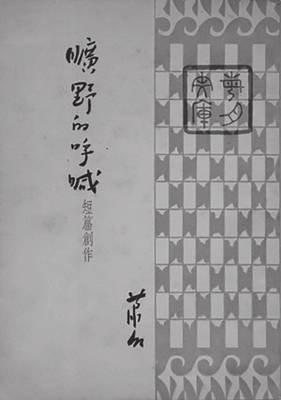 每月文庫
曠野的呼喊
短篇創作
蕭紅